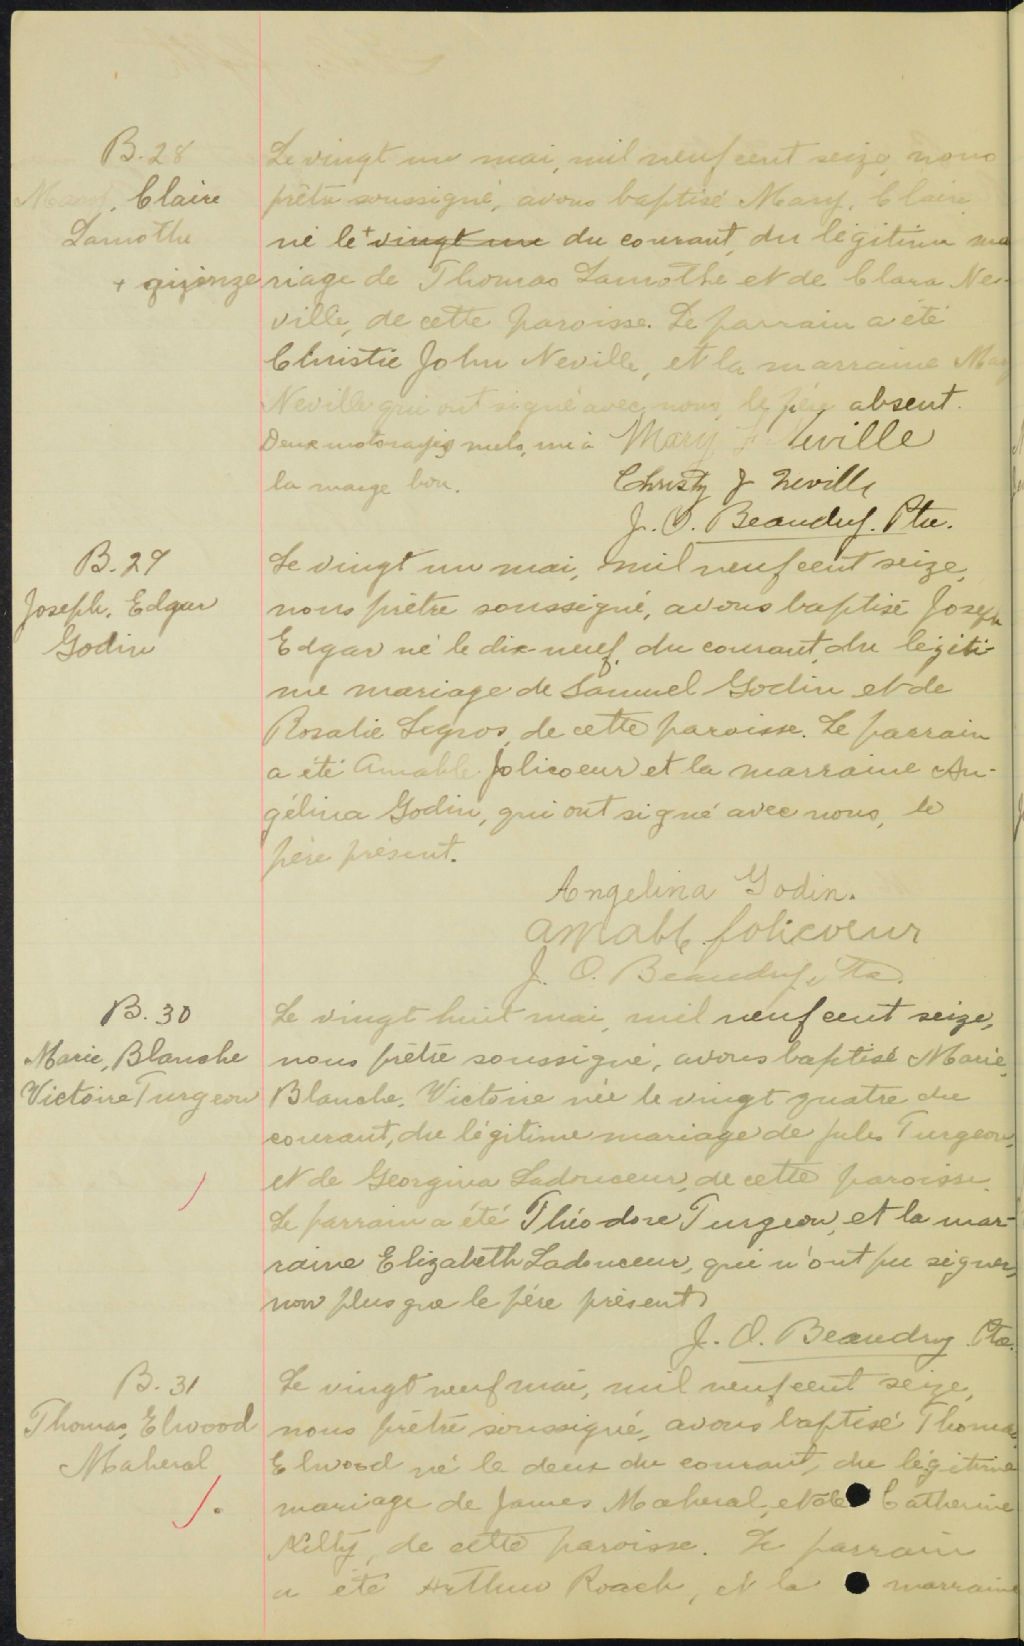 B. 28
Mary, Claire
Lamothe
+ quinze
Le vingt un mai, mil neuf cent seize, nous
prêtre soussigné, avons baptisé Mary, Claire
né le + vingt un du courant, du légitime ma
riage de Thomas Lamothe et de Clara Ne-
ville, de cette paroisse. Le parrain a été
Christie John Neville, et la marraine Mary
Neville qui ont signé avec nous, le père absent.
Deux mots rayés nuls, un à
la marge bon.
Mary Neville
Christy J Neville
J. O. Beaudry. Ptre.
B. 29
Joseph, Edgar
Godin
Le vingt un mai, mil neuf cent seize,
nous prêtre soussigné, avons baptisé Joseph
Edgar né le dix-neuf, du courant, du légiti-
me mariage de Samuel Godin et de
Rosalie Legros, de cette paroisse. Le parrain
a été Amable Jolicoeur et la marraine An-
gélina Godin, qui ont signé avec nous, le
père présent.
Angelina Godin.
Amable Jolicoeur
J. O. Beaudry, Ptre.
B. 30
Marie, Blanche
Victoire Turgeon
Le vingt huit mai, mil neuf cent seize,
nous prêtre soussigné, avons baptisé Marie,
Blanche, Victoire née le vingt quatre du
courant, du légitime mariage de Jules Turgeon,
et de Georgina Ladouceur, de cette paroisse.
Le parrain a été Théodore Turgeon, et la mar-
raine Elizabeth Ladouceur, qui n'ont pu signer,
non plus que le père présent.
J. O. Beaudry. Ptre.
B. 31
Thomas, Elwood
Maheral
Le vingt neuf mai, mil neuf cent seize,
nous prêtre soussigné, avons baptisé Thomas
Elwood né le deux du courant, du légitime
mariage de James Maheral, et de Catherine
Kilty, de cette paroisse. Le parrain
a été Arthur Roach, et la marraine